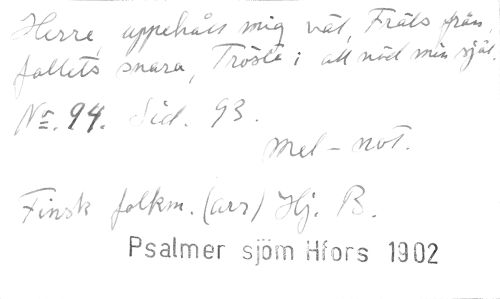 Herre, uppehåll mig väl, Fräls från
fallets snara, Tröste i all nöd min själ.
No. 94. Sid. 93.
Mel-not.
Finsk folkm. (arr) Hj. B.
Psalmer sjöm Hfors 1902